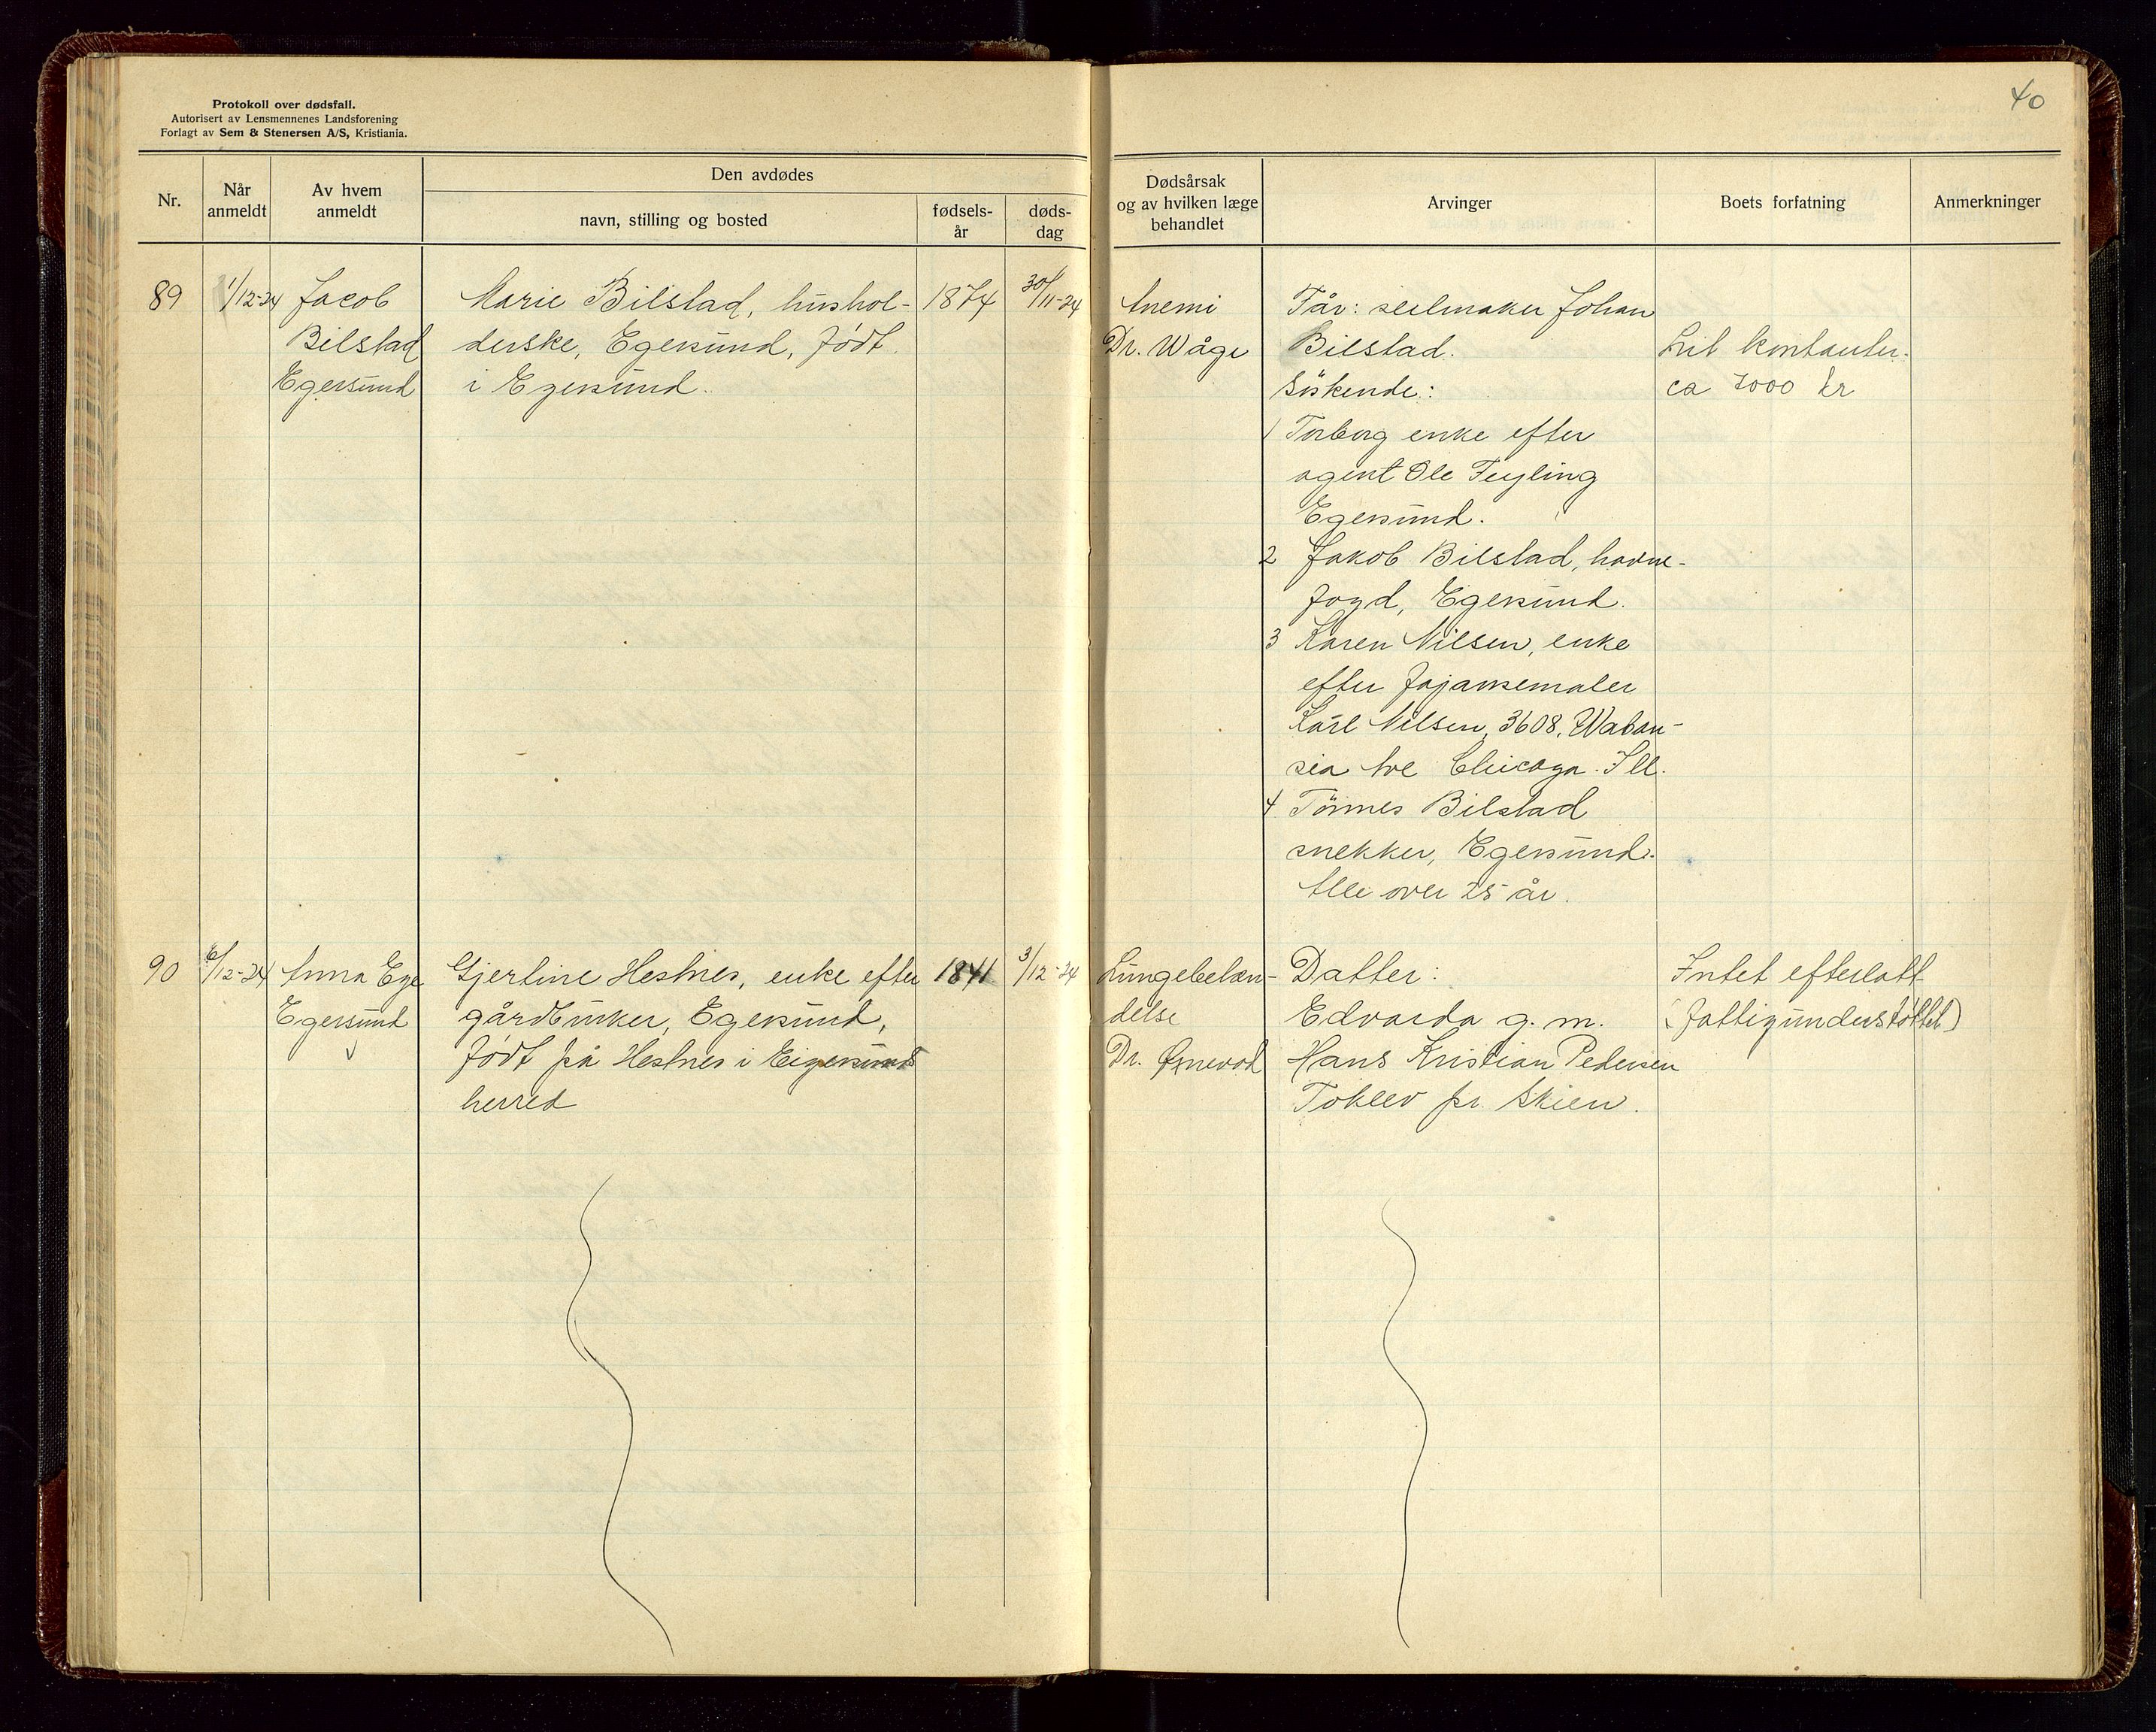 Protokoll over dødsfall.
Autorisert av Lensmennenes Landsforening
Forlagt av Sem & Stenersen A/S, Kristiania.
40
Nr.
Når
anmeldt
Av hvem
anmeldt
Den avdødes
navn, stilling og bosted
fødsels-
år
døds-
dag
Dødsårsak
og av hvilken læge
behandlet
Arvinger
Boets forfatning
Anmerkninger
89
1/12-24
Jacob
Bilstad
Egersund
Marie Bilstad, hushol-
derske, Egersund, født
i Egersund.
1874
30/11-24
Anemi
Dr. Wåge
Får: seilmaker Johan
Bilstad.
Söskende:
1 Torborg enke efter
agent Ole Feyling
Egersund.
2 Jakob Bilstad, havne-
fogd, Egersund.
3 Karen Nilsen, enke
efter fajansemaler
Karl Nilsen, 3608, Waban-
sia Ave Chicago. Ill.
4 Tönnes Bilstad
snekker, Egersund.
Alle over 25 år.
Lit kontanter.
ca 7000 kr
90
6/12-24
Anna Ege
Egersund
Gjertine Hestnes, enke efter
gårdbruker, Egersund,
født på Hestnes i Eigersund
herred
1841
3/12-24
Lungebetæn-
delse
Dr.
Datter:
Edvarda g. m.
Hans Kristian Pedersen
pr. Skien.
Intet efterlatt
(fattigunderstøttet)